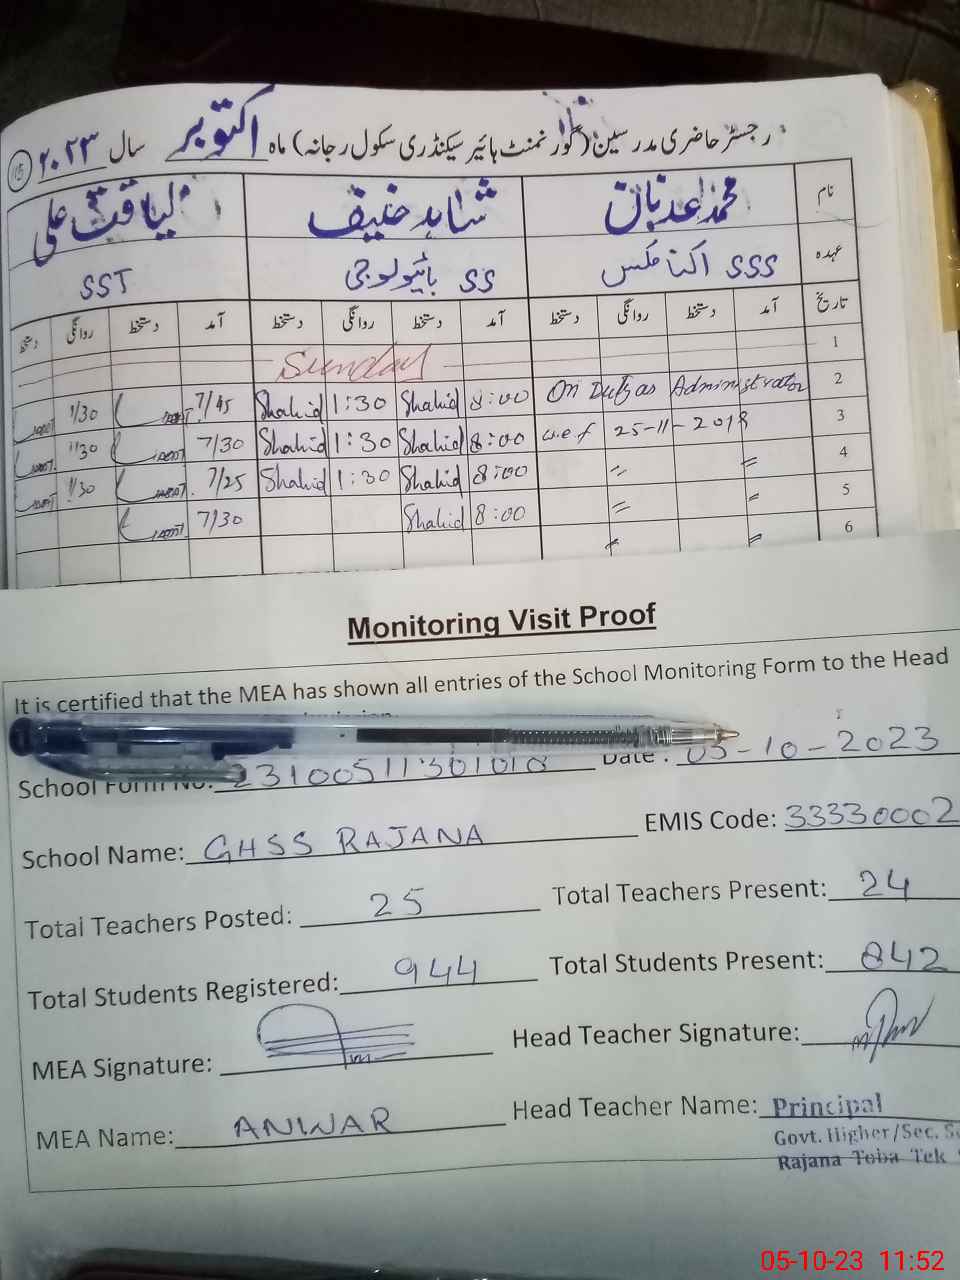 رجسٹر حاضری مدرسین (گورنمنٹ ہائیر سیکنڈری سکول رجانہ) ماہ اکتوبر سال ۲۰۲۳
نام محمد عدنان شاہد حنیف لیاقت علی
عہدہ SSS اکنامکس SS بائیولوجی SST
تاریخ آمد دستخط روانگی دستخط آمد دستخط روانگی دستخط آمد دستخط روانگی دستخط
1 Sunday
2 On Duty as Administrator 8:00 Shahid 1:30 Shahid 7/45 1/30
3 w.e.f 25-11-2018 8:00 Shahid 1:30 Shahid 7/30 1/30
4 〃 〃 8:00 Shahid 1:30 Shahid 7/25 1/30
5 〃 〃 8:00 Shahid 7/30
6 〃 〃
Monitoring Visit Proof
It is certified that the MEA has shown all entries of the School Monitoring Form to the Head
School Form No: Date: 05-10-2023
School Name: GHSS RAJANA EMIS Code: 33330002
Total Teachers Posted: 25 Total Teachers Present: 24
Total Students Registered: 944 Total Students Present: 842
MEA Signature: Head Teacher Signature:
MEA Name: ANWAR Head Teacher Name: Principal
Govt. Higher/Sec.
Rajana Toba Tek
05-10-23 11:52